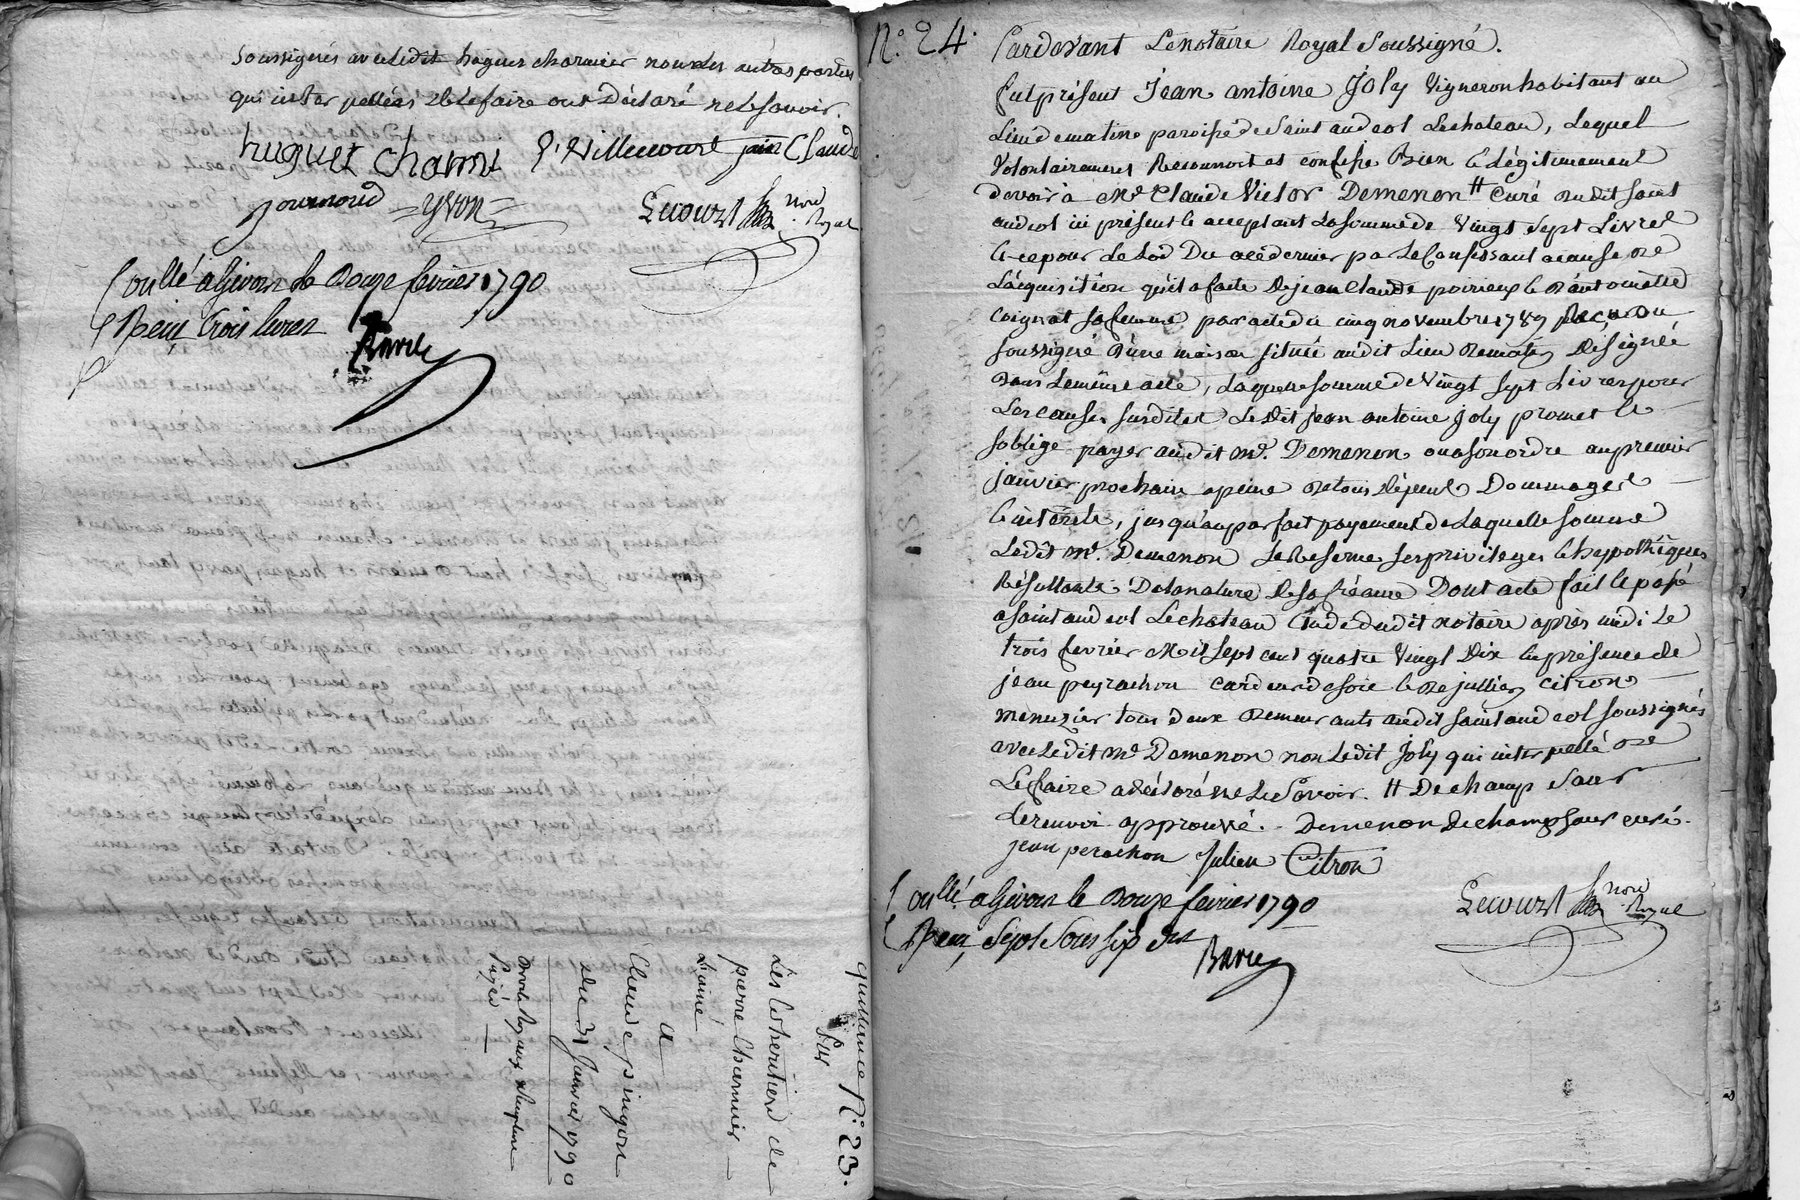 soussignés avec ledit hugues charmier non les autres parties
qui interpellées de le faire ont déclaré ne le savoir.
huguet charmi Villecourt jean Claude
journoud =yvon=
Lecourt no.re Royal
Coullé a Givors le Douze fevrier 1790
Reçu trois livres
Barve
quittance N.° 23.
Par
Les heritiers de
pierre Charmier
L'ainé
a
Claude
du 31 Janvier 1790
N.° 24. Pardevant Le notaire Royal Soussigné.
fut présent Jean antoine Joly Vigneron habitant au
Lieu de paroisse de Saint andeol Lechateau, Lequel
Volontairement Reconnoit et confesse Bien et légitimement
devoir à M.r Claude Victor Demenon # Curé dudit saint
andeol ici présent et acceptant La somme de Vingt Sept Livres
et ce pour Le Lod Du à ce dernier par Le Confessant a cause de
L'acquisition qu'il a faite de jean Claude poirieux et d'antoinette
coignat sa femme par acte du cinq novembre 1789 Reçu du
soussigné d'une maison située audit Lieu Désignée
Dans Le même acte, Laquelle somme de Vingt Sept Livres pour
Les causes susdites Ledit jean antoine Joly promet et
s'oblige payer audit M.r Demenon ou a son ordre au premier
janvier prochain a peine de tous dépens Dommages
et intérêts, jusqu'au parfait payement de Laquelle somme
Ledit M.r Demenon se Reserve ses privileges et hypothèques
Résultants De la nature de sa créance Dont acte fait et passé
a saint andeol Lechateau Etude dudit notaire après midi Le
trois fevrier Mil Sept cent quatre Vingt Dix en présence de
jean peyrachon cardeur de soie et de jullien citron
menuzier tous deux demeurants audit saint andeol soussignés
avec Ledit M.r Demenon non Ledit Joly qui interpellé de
Le faire a déclaré ne Le Savoir. # Dechamp Saur
Le renvoi approuvé. - Demenon Dechampsaur curé.
jean perachon Julien Citron
Lecourt no.re Royal
Coullé a Givors le Douze fevrier 1790
Reçu, Sept Sous six drs
Barve